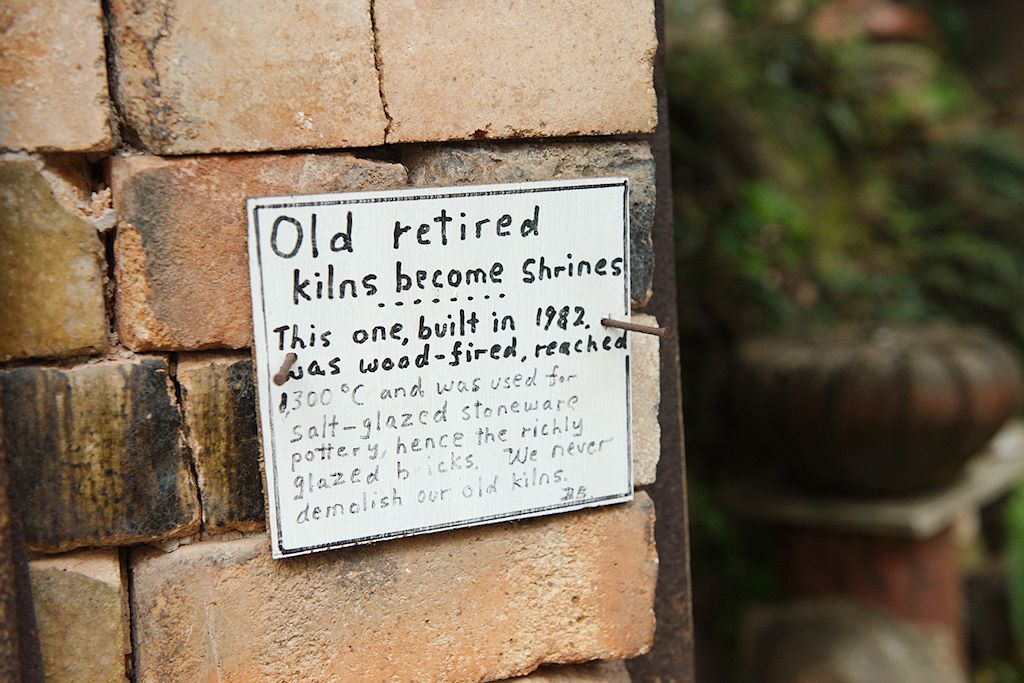 Old retired
kilns become Shrines
This one, built in 1982.
was wood-fired, reached
1,300°C and was used for
salt-glazed stoneware
pottery, hence the richly
glazed bricks. We never
demolish our old kilns.